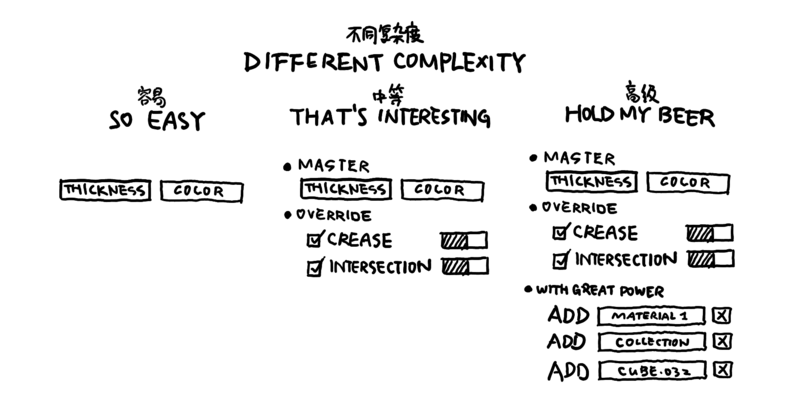 不同复杂度
DIFFERENT COMPLEXITY
容易
SO EASY
THICKNESS COLOR
中等
THAT'S INTERESTING
MASTER
THICKNESS COLOR
OVERRIDE
CREASE
INTERSECTION
高级
HOLD MY BEER
MASTER
THICKNESS COLOR
OVERRIDE
CREASE
INTERSECTION
WITH GREAT POWER
ADD MATERIAL 1 X
ADD COLLECTION X
ADD CUBE.032 X